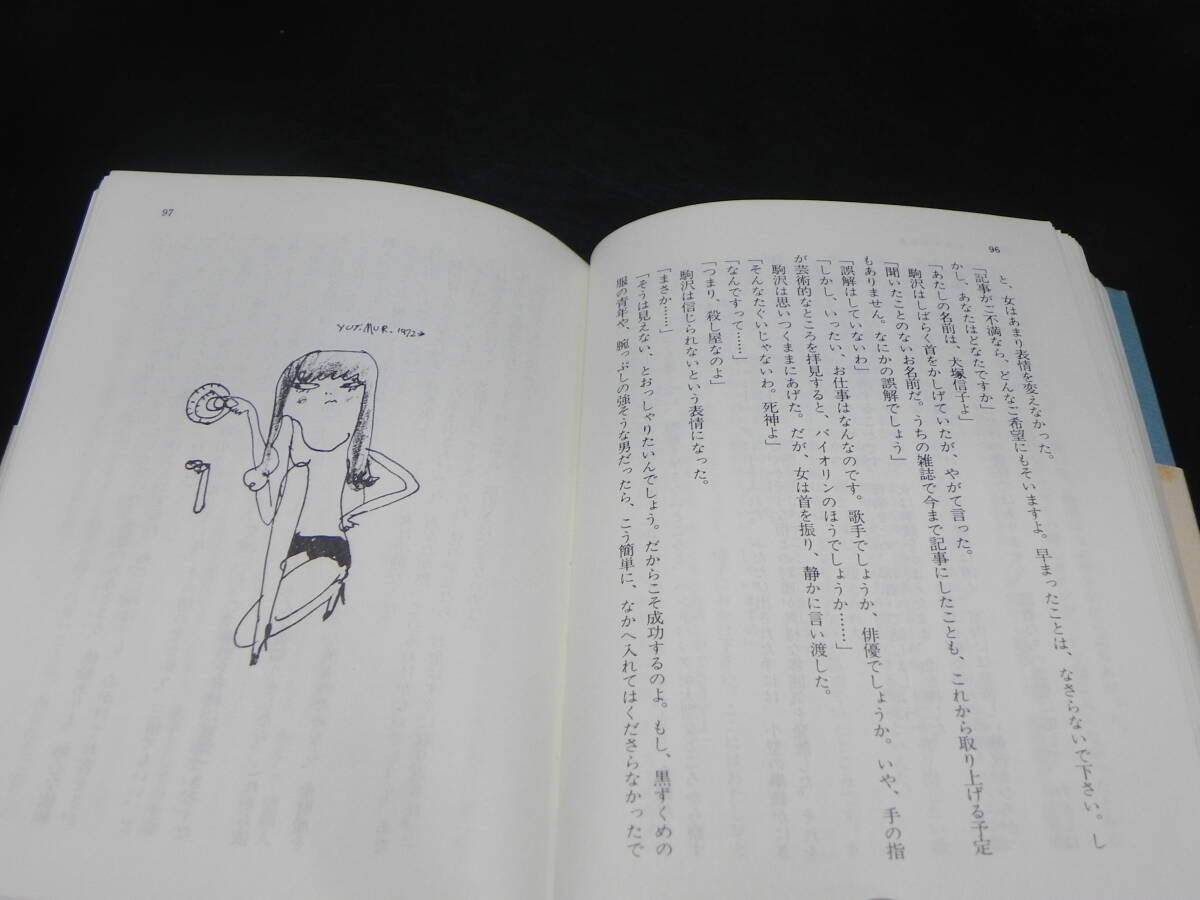 96
と、女はあまり表情を変えなかった。
「記事がご不満なら、どんなご希望にもそいますよ。早まったことは、なさらないで下さい。し
かし、あなたはどなたですか」
「あたしの名前は、犬塚信子よ」
駒沢はしばらく首をかしげていたが、やがて言った。
「聞いたことのないお名前だ。うちの雑誌で今まで記事にしたことも、これから取り上げる予定
もありません。なにかの誤解でしょう」
「誤解はしていないわ」
「しかし、いったい、お仕事はなんなのです。歌手でしょうか、俳優でしょうか。いや、手の指
が芸術的なところを拝見すると、バイオリンのほうでしょうか……」
駒沢は思いつくままにあげた。だが、女は首を振り、静かに言い渡した。
「そんなたぐいじゃないわ。死神よ」
「なんですって……」
「つまり、殺し屋なのよ」
駒沢は信じられないという表情になった。
「まさか……」
「そうは見えない、とおっしゃりたいんでしょう。だからこそ成功するのよ。もし、黒ずくめの
服の青年や、腕っぷしの強そうな男だったら、こう簡単に、なかへ入れてはくださらなかったで
97
YOT. MUR. 1972